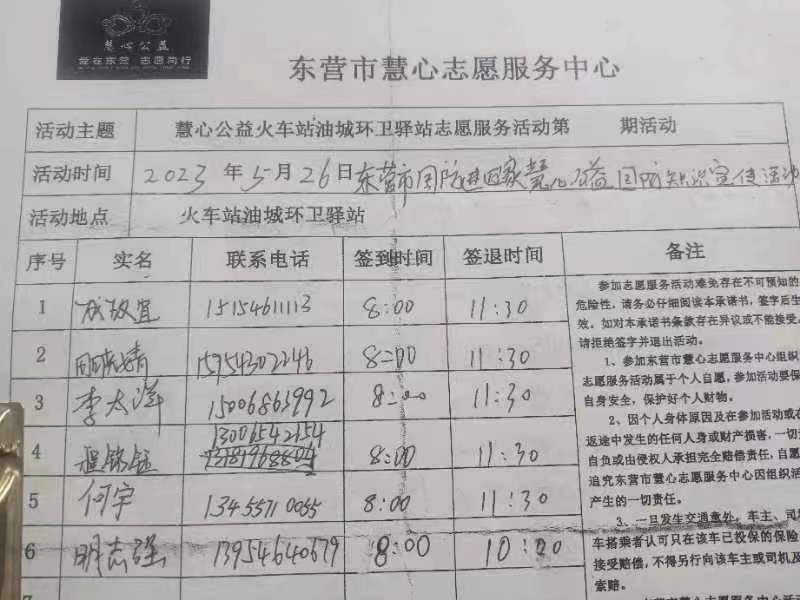 慧心公益
爱在东营 志愿同行
东营市慧心志愿服务中心
活动主题 慧心公益火车站油城环卫驿站志愿服务活动第 期活动
活动时间 2023 年 5 月 26 日 东营市国防进国家慧心公益国防知识宣传活动
活动地点 火车站油城环卫驿站
序号 实名 联系电话 签到时间 签退时间 备注
1 15154611113 8:00 11:30
2 15954302246 8:00 11:30
3 李太洋 15006863992 8:00 11:30
4 13006542154 8:00 11:30
5 何宇 13455710055 8:00 11:30
6 明志强 13954640679 8:00 10:00
参加志愿服务活动难免存在不可预知的
危险性，请务必仔细阅读本承诺书，签字后生
效。如对本承诺书条款存在异议或不能接受，
请拒绝签字并退出活动。
1、参加东营市慧心志愿服务中心组织
志愿服务活动属于个人自愿，参加活动要保
自身安全，保护好个人财物。
2、因个人身体原因及在参加活动或在
返途中发生的任何人身或财产损害，一切
自负或由侵权人承担完全赔偿责任，自愿
追究东营市慧心志愿服务中心因组织活
产生的一切责任。
3、一旦发生交通意外，车主、司
车搭乘者认可只在该车已投保的保险
接受赔偿，不得另行向该车主或司机及
索赔。